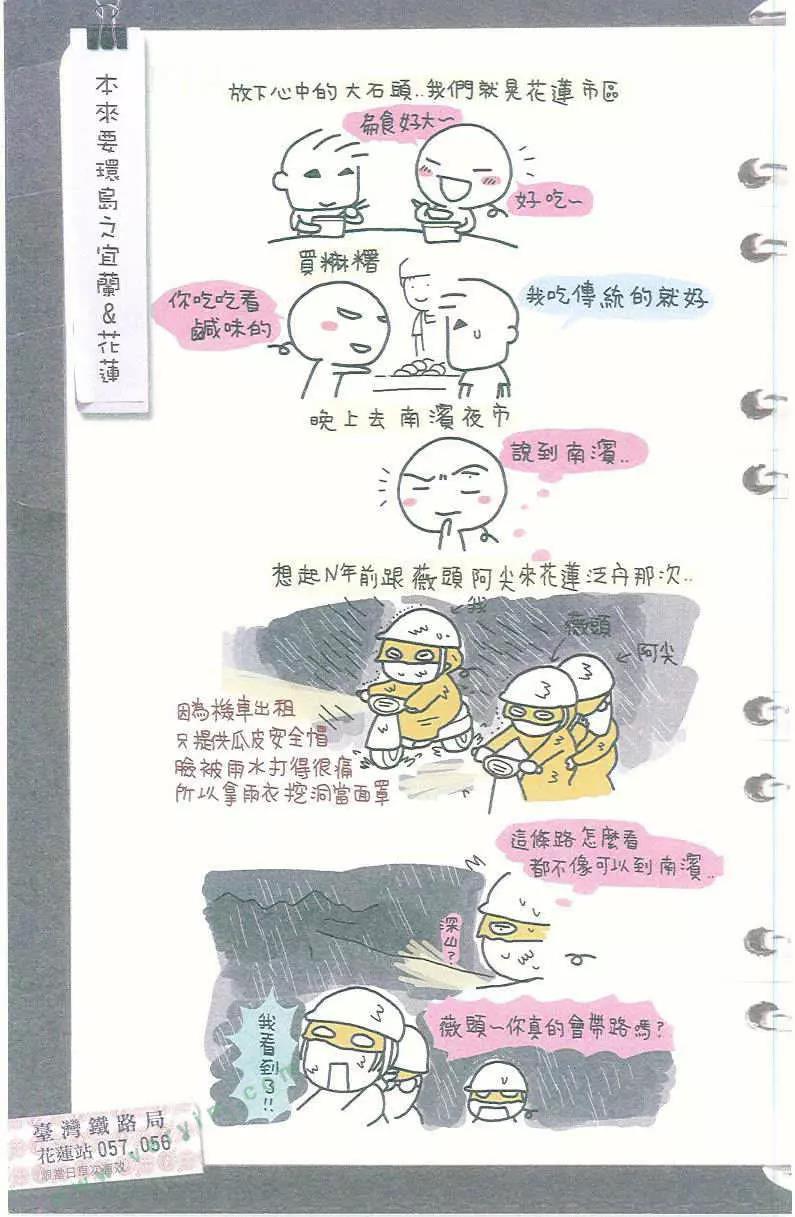 本來要環島之宜蘭&花蓮
放下心中的大石頭..我們就是花蓮市區
扁食好大~
好吃~
買麻糬
你吃吃看
鹹味的
我吃傳統的就好
晚上去南濱夜市
說到南濱..
想起N年前跟薇頭阿尖來花蓮泛舟那次..
我
薇頭
阿尖
因為機車出租
只提供瓜皮安全帽
臉被雨水打得很痛
所以拿雨衣挖洞當面罩
這條路怎麼看
都不像可以到南濱..
深山?
我看到了!!
薇頭~你真的會帶路嗎?
臺灣鐵路局
花蓮站 057.056
限當日當次有效